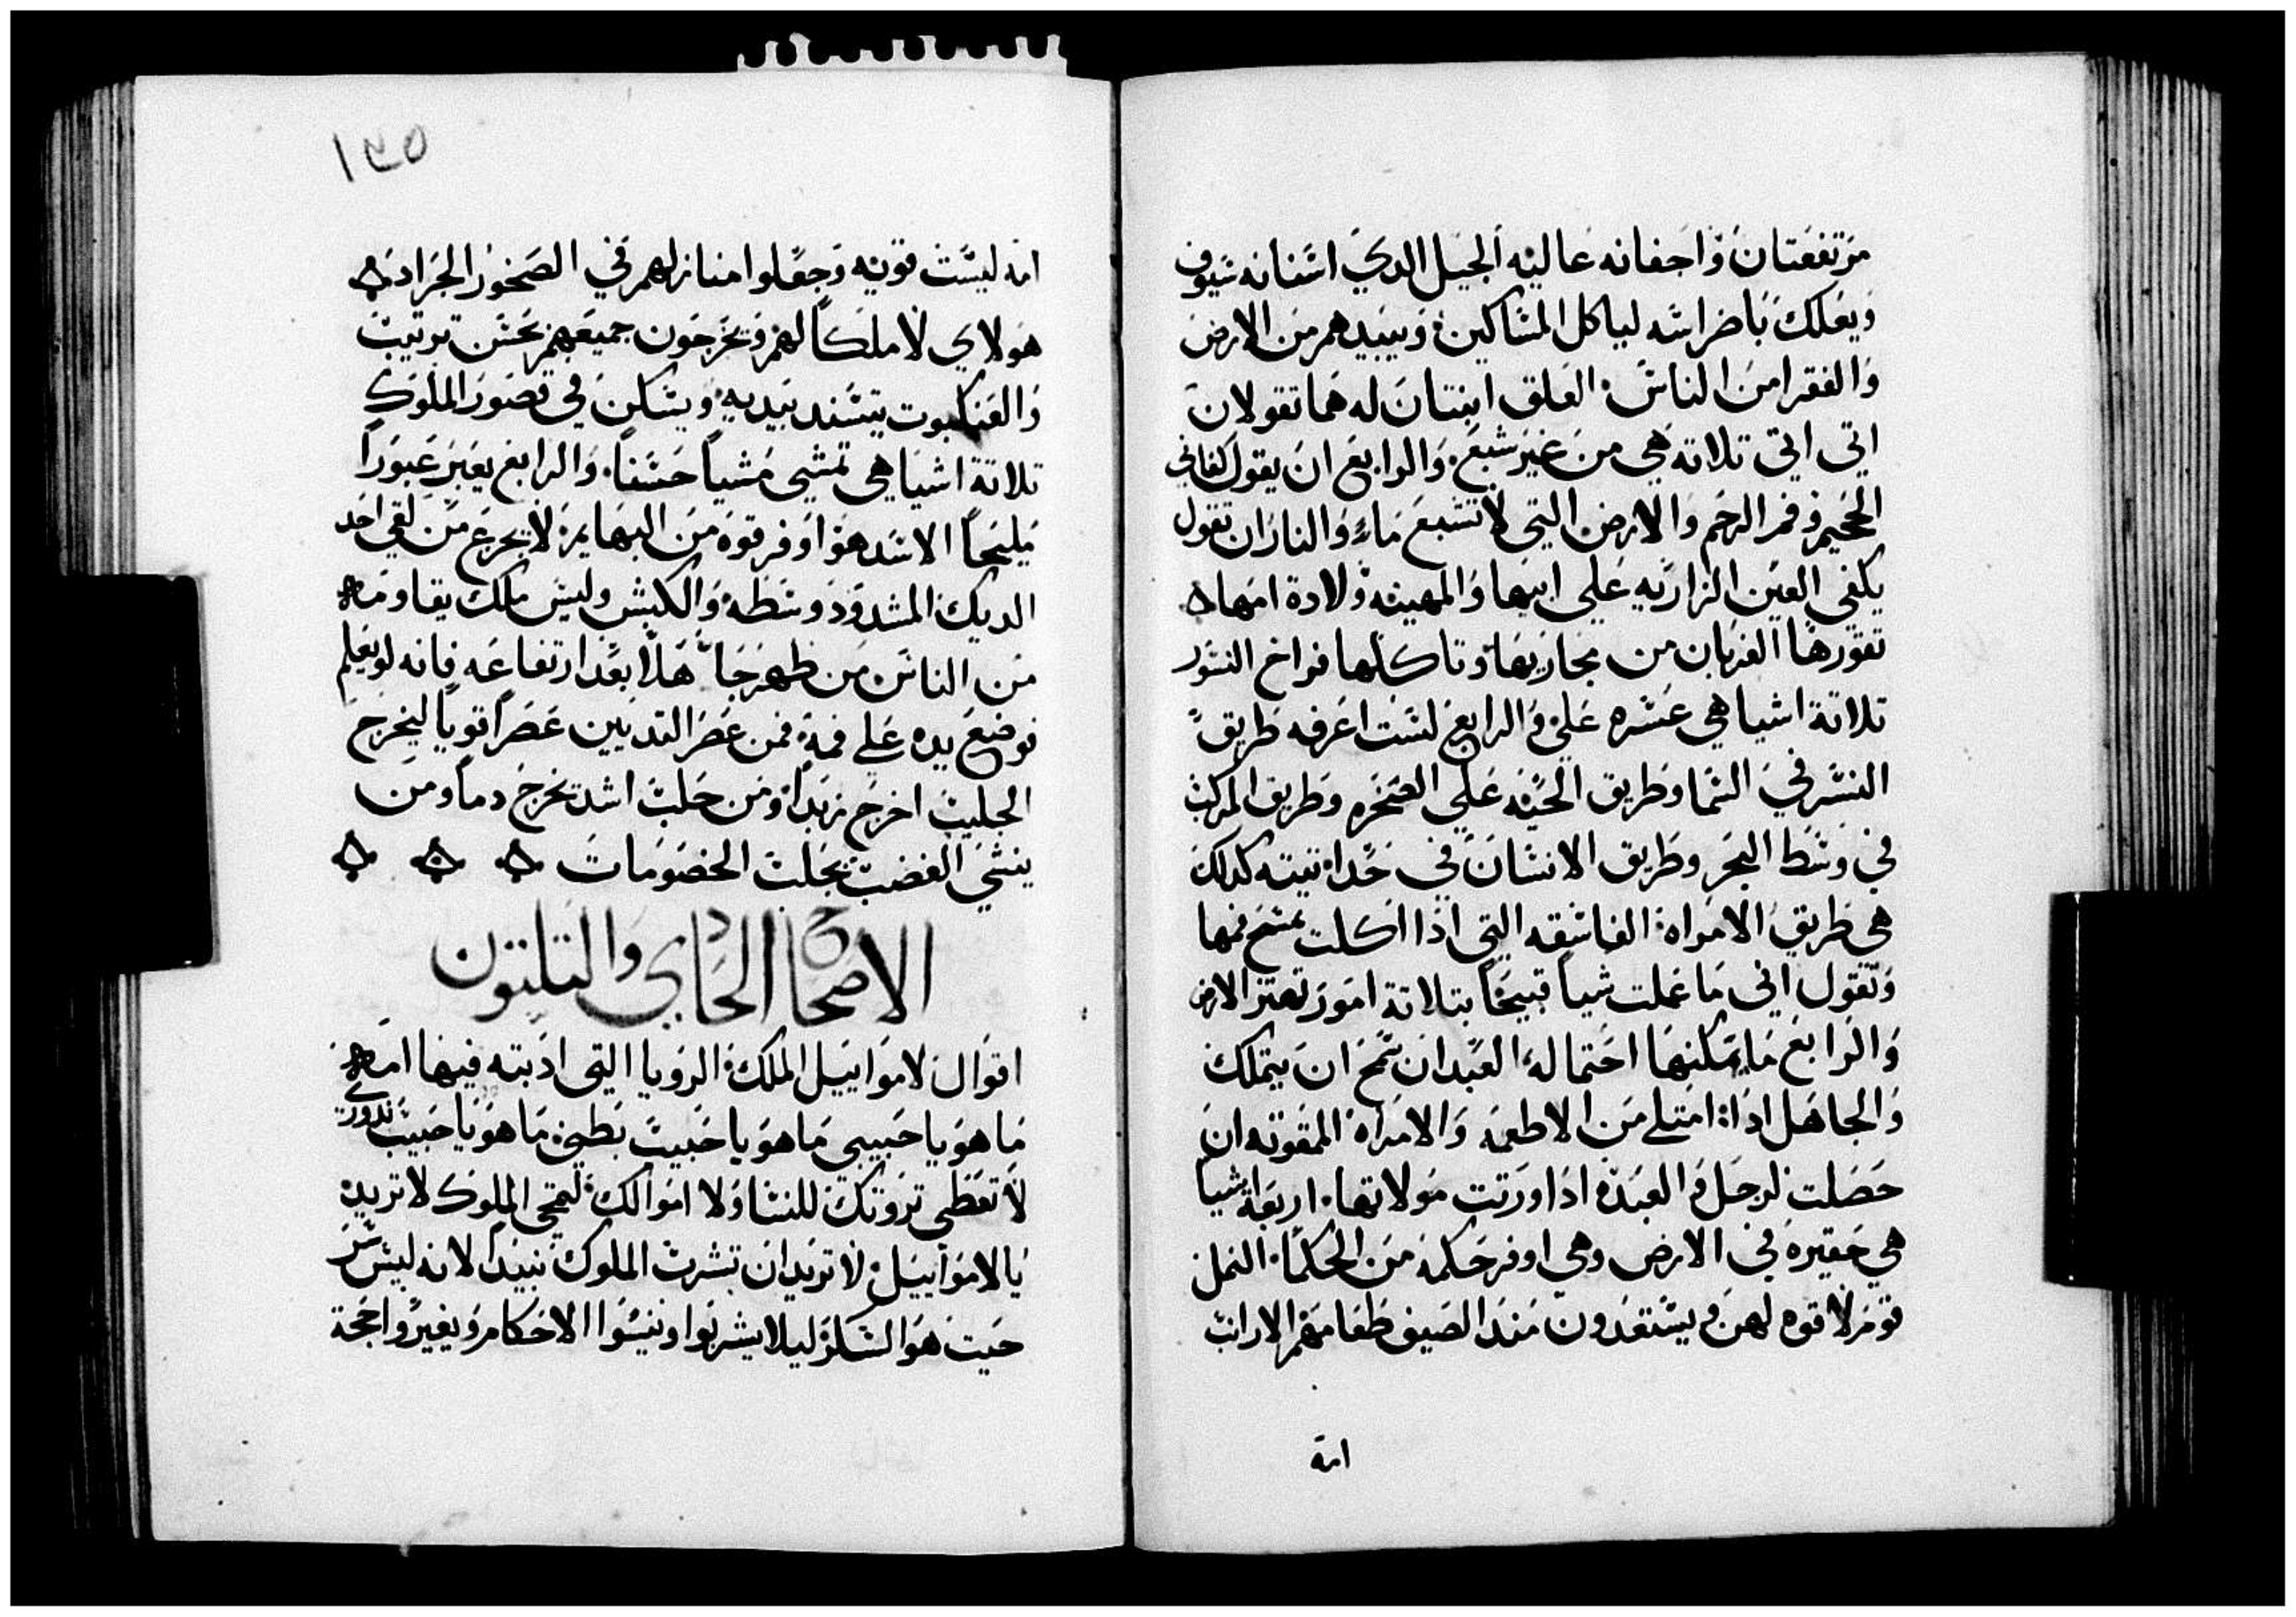 مرتفعتان واجفانه عاليه الجيل الدي اسنانه سيوف
ويعلك باضراسه لياكل المساكين ويبيدهم من الارض
والفقرا من الناس العلق ابنتان له هما تقولان
اتي اتي تلاتة هي من غير شبع والرابع ان يقول كفاني
الجحيم وفم الرحم والارض التي لا تشبع ماء والنار ان تقول
يكفي العين الزاريه علي ابيها والمهينه ولادة امها
تقورها الغربان من مجاريها وتاكلها فراخ النسور
تلاتة اشيا هي عسره علي والرابع لست اعرفه طريق
النسر في السما وطريق الحيه علي الصخره وطريق المركب
في وسط البحر وطريق الانسان في حداتيته كدلك
هي طريق الامراه الفاسقه التي ادا اكلت تمسح فمها
وتقول اني ما عملت شيا قبيحا بتلاتة امور تهتز الارض
والرابع ما يمكنها احتماله العبد ان سمح ان يتملك
والجاهل ادا امتلي من الاطعمه والامراه الممقوته ان
حصلت لرجل والعبده ادا ورتت مولاتها اربعة اشيا
هي حقيره في الارض وهي اوفر حكمه من الحكما النمل
قوم لا قوه لهم ويستعدون مند الصيف طعامهم الارانب
امة
١٣٥
امه ليست قويه وجعلوا منازلهم في الصخور الجراد
هولاي لا ملكا لهم وتخرجون جميعهم بحسن ترتيب
والعنكبوت يتسند بيديه ويسكن في قصور الملوك
تلاتة اشيا هي تمشي مشيا حسنا والرابع يعبر عبورا
مليحا الاسد هو اوفر قوه من البهايم لا يجزع من لقي احد
الديك المشدود وسطه والكبش وليس ملك يقاومه
من الناس من ظهر جاهلا بعد ارتفاعه فانه لو يعلم
لوضع يده علي فمه فمن عصر التديين عصرا قويا ليخرج
الحليب اخرج زبدا ومن حلب اشد تخرج دما ومن
ينشي الغضب يجلب الخصومات
الاصحاح الحادي والتلتون
اقوال لاموابيل الملك الرويا التي ادبته فيها امه
ما هو يا حبيبي ما هو يا حبيب بطني ما هو يا حبيب ندوري
لا تعطي تروتك للنسا ولا اموالك لتمحي الملوك لا تريد
يا لاموابيل لا تريد ان تشرب الملوك نبيدا لانه ليس سر
حيت هو السكر ليلا يشربوا وينسوا الاحكام ويغيروا حجة